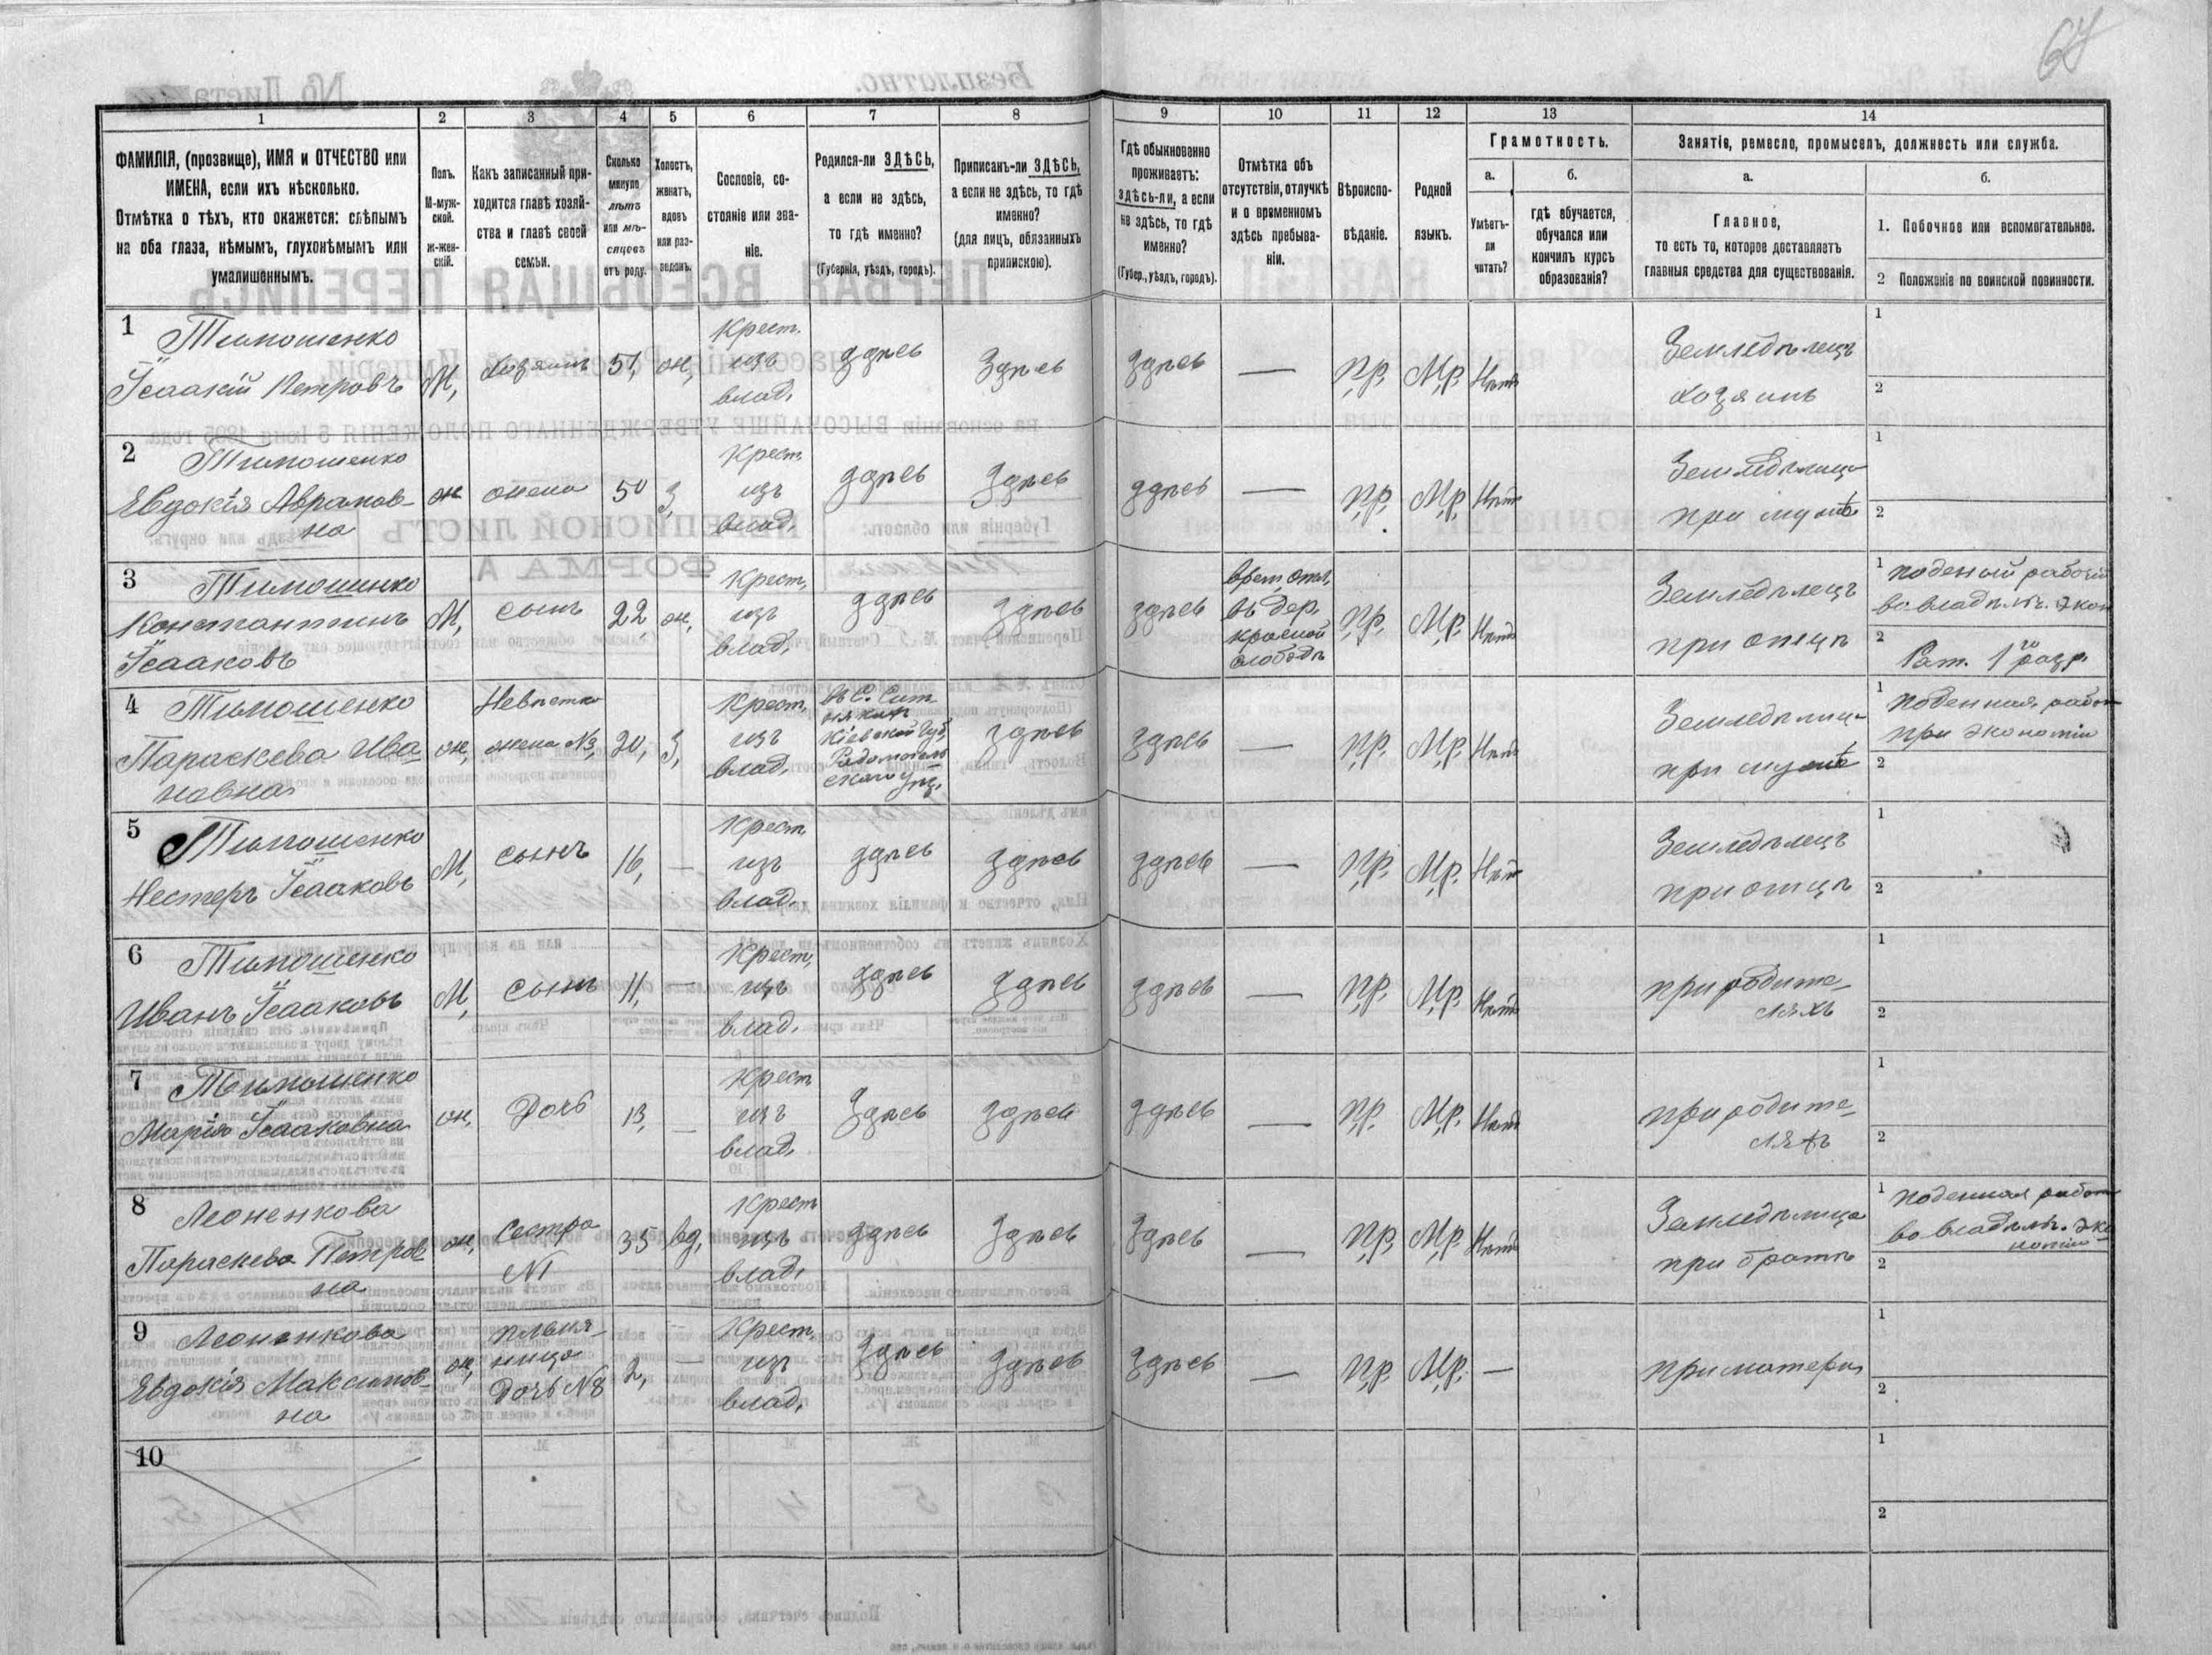 67
1 2 3 4 5 6 7 8 9 10 11 12 13 14
ФАМИЛІЯ, (прозвище), ИМЯ и ОТЧЕСТВО или
ИМЕНА, если ихъ нѣсколько.
Отмѣтка о тѣхъ, кто окажется: слѣпымъ
на оба глаза, нѣмымъ, глухонѣмымъ или
умалишеннымъ.
Полъ.
М-муж-
ской.
ж-жен-
скій.
Какъ записанный при-
ходится главѣ хозяй-
ства и главѣ своей
семьи.
Сколько
минуло
лѣтъ
или мѣ-
сяцевъ
отъ роду.
Холостъ,
женатъ,
вдовъ
или раз-
веденъ.
Сословіе, со-
стояніе или зва-
ніе.
Родился-ли ЗДѢСЬ,
а если не здѣсь,
то гдѣ именно?
(Губернія, уѣздъ, городъ).
Приписанъ-ли ЗДѢСЬ,
а если не здѣсь, то гдѣ
именно?
(для лицъ, обязанныхъ
припискою).
Гдѣ обыкновенно
проживаетъ:
здѣсь-ли, а если
не здѣсь, то гдѣ
именно?
(Губер., уѣздъ, городъ).
Отмѣтка объ
отсутствіи, отлучкѣ
и о временномъ
здѣсь пребыва-
ніи.
Вѣроиспо-
вѣданіе.
Родной
языкъ.
Грамотность.
а.
Умѣетъ-
ли
читать?
б.
гдѣ обучается,
обучался или
кончилъ курсъ
образованія?
Занятіе, ремесло, промыселъ, должность или служба.
а.
Главное,
то есть то, которое доставляетъ
главныя средства для существованія.
б.
1. Побочное или вспомогательное.
2 Положеніе по воинской повинности.
1 Тимошенко
Ісаакій Петровъ
М, хозяинъ 51, ж,
Крест.
изъ
влад.
здѣсь здѣсь здѣсь — Пр. Мр. Нѣтъ
Земледѣлецъ
хозяинъ
1
2
2 Тимошенко
Евдокія Аврамов-
на
ж жена 50 З,
Крест.
изъ
влад.
здѣсь здѣсь здѣсь — Пр. Мр. Нѣтъ
Земледѣлица
при мужѣ
1
2
3 Тимошенко
Константинъ
Ісааковъ
М, сынъ 22 ж,
Крест.
изъ
влад.
здѣсь здѣсь здѣсь
врем. отл.
въ дер.
Красной
слободѣ
Пр. Мр. Нѣтъ
Земледѣлецъ
при отцѣ
1 поденый рабочій
во владѣльч. экон
2 Рат. 1го разр.
4 Тимошенко
Параскева Ива
новна
ж,
Невѣстка
жена №3, 20, З,
Крест.
изъ
влад.
въ С. Сит
някахъ
Кіевской Губ.
Радомысль
скаго уѣз.
здѣсь здѣсь — Пр. Мр. Нѣтъ
Земледѣлица
при мужѣ
1 поденная работ
при экономіи
2
5 Тимошенко
Нестеръ Ісааковъ
М, сынъ 16, —
Крест.
изъ
влад.
здѣсь здѣсь здѣсь — Пр. Мр. Нѣтъ
Земледѣлецъ
при отцѣ
1
2
6 Тимошенко
Иванъ Ісааковъ
М, сынъ 11, —
Крест.
изъ
влад.
здѣсь здѣсь здѣсь — Пр. Мр. Нѣтъ
при родите-
ляхъ
1
2
7 Тимошенко
Марія Ісааковна
ж, Дочь 13, —
Крест
изъ
влад.
здѣсь здѣсь здѣсь — Пр. Мр. Нѣтъ
при родите-
ляхъ
1
2
8 Леоненкова
Параскева Петров
на
ж, сестра
№1
35 вд,
Крест
изъ
влад.
здѣсь здѣсь здѣсь — Пр. Мр. Нѣтъ
Земледѣлица
при братѣ
1 поденная работ
во владѣльч. эко
номіи
2
9 Леоненкова
Евдокія Максимов-
на
ж,
племя-
ница
Дочь №8
2, —
Крест.
изъ
влад.
здѣсь здѣсь здѣсь — Пр. Мр. —
при матери
1
2
10
1
2